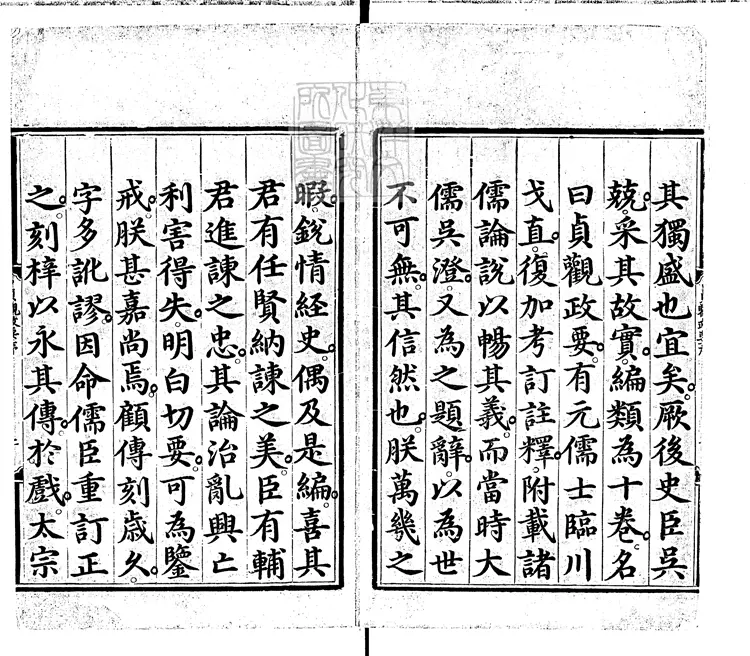 其獨盛也宜矣。厥後史臣吳
兢。采其故實。編類為十卷。名
曰貞觀政要。有元儒士臨川
戈直。復加考訂註釋。附載諸
儒論說以暢其義。而當時大
儒吳澄。又為之題辭。以為世
不可無。其信然也。朕萬幾之
暇。銳情經史。偶及是編。喜其
君有任賢納諫之美。臣有輔
君進諫之忠。其論治亂興亡
利害得失。明白切要。可為鑒
戒。朕甚嘉尚焉。顧傳刻歲久。
字多訛謬。因命儒臣重訂正
之。刻梓以永其傳。於戲。太宗